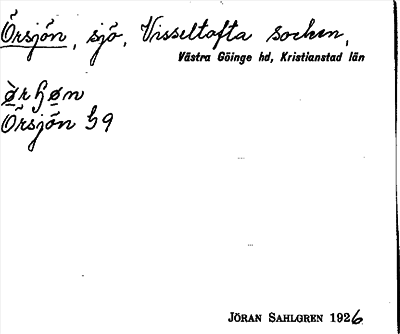 Örsjön, sjö, Visseltofta socken,
Västra Göinge hd, Kristianstad län
Örsjön
JÖRAN SAHLGREN 1926